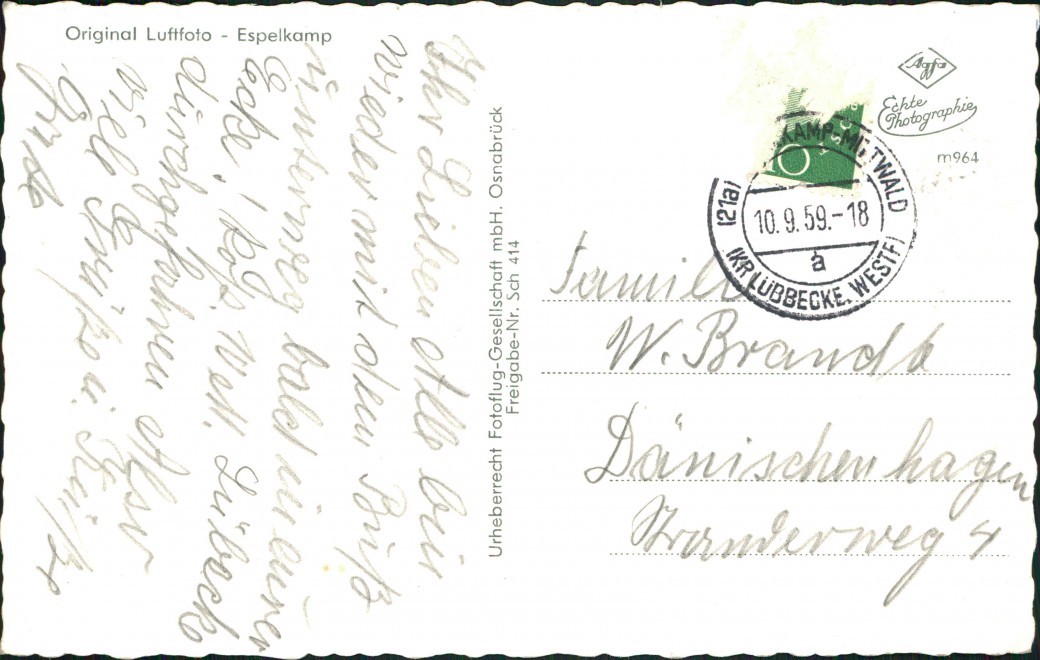 Original Luftfoto - Espelkamp
Ihr Lieben Alle bin
wieder mit dem Bus
unterweg bald in eurer
Ecke,
durchgefahren Aber
viel Grüße u. Küsse
Urheberrecht Fotoflug-Gesellschaft mbH. Osnabrück
Freigabe-Nr. Sch 414
Agfa
Echte
Photographie
m964
10
KAMP-MITTWALD
(21a)
10.9.59.-18
a
(KR LÜBBECKE, WESTF)
Famil
W. Brandt
Dänischenhagen
Stranderweg 4